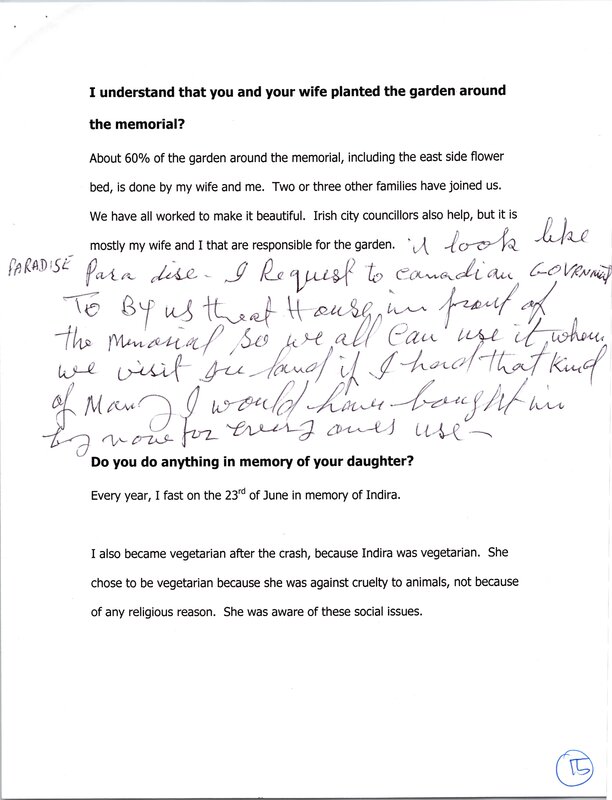 I understand that you and your wife planted the garden around
the memorial?
About 60% of the garden around the memorial, including the east side flower
bed, is done by my wife and me. Two or three other families have joined us.
We have all worked to make it beautiful. Irish city councillors also help, but it is
mostly my wife and I that are responsible for the garden. it look like
PARADISE Para dise - I Request to canadian GOVERNMENT
TO By us threat House in front of
the Memorial so we all can use it when
we visit if I had that kind
of Many I would have bought in
by none for every ones use -
Do you do anything in memory of your daughter?
Every year, I fast on the 23rd of June in memory of Indira.
I also became vegetarian after the crash, because Indira was vegetarian. She
chose to be vegetarian because she was against cruelty to animals, not because
of any religious reason. She was aware of these social issues.
15